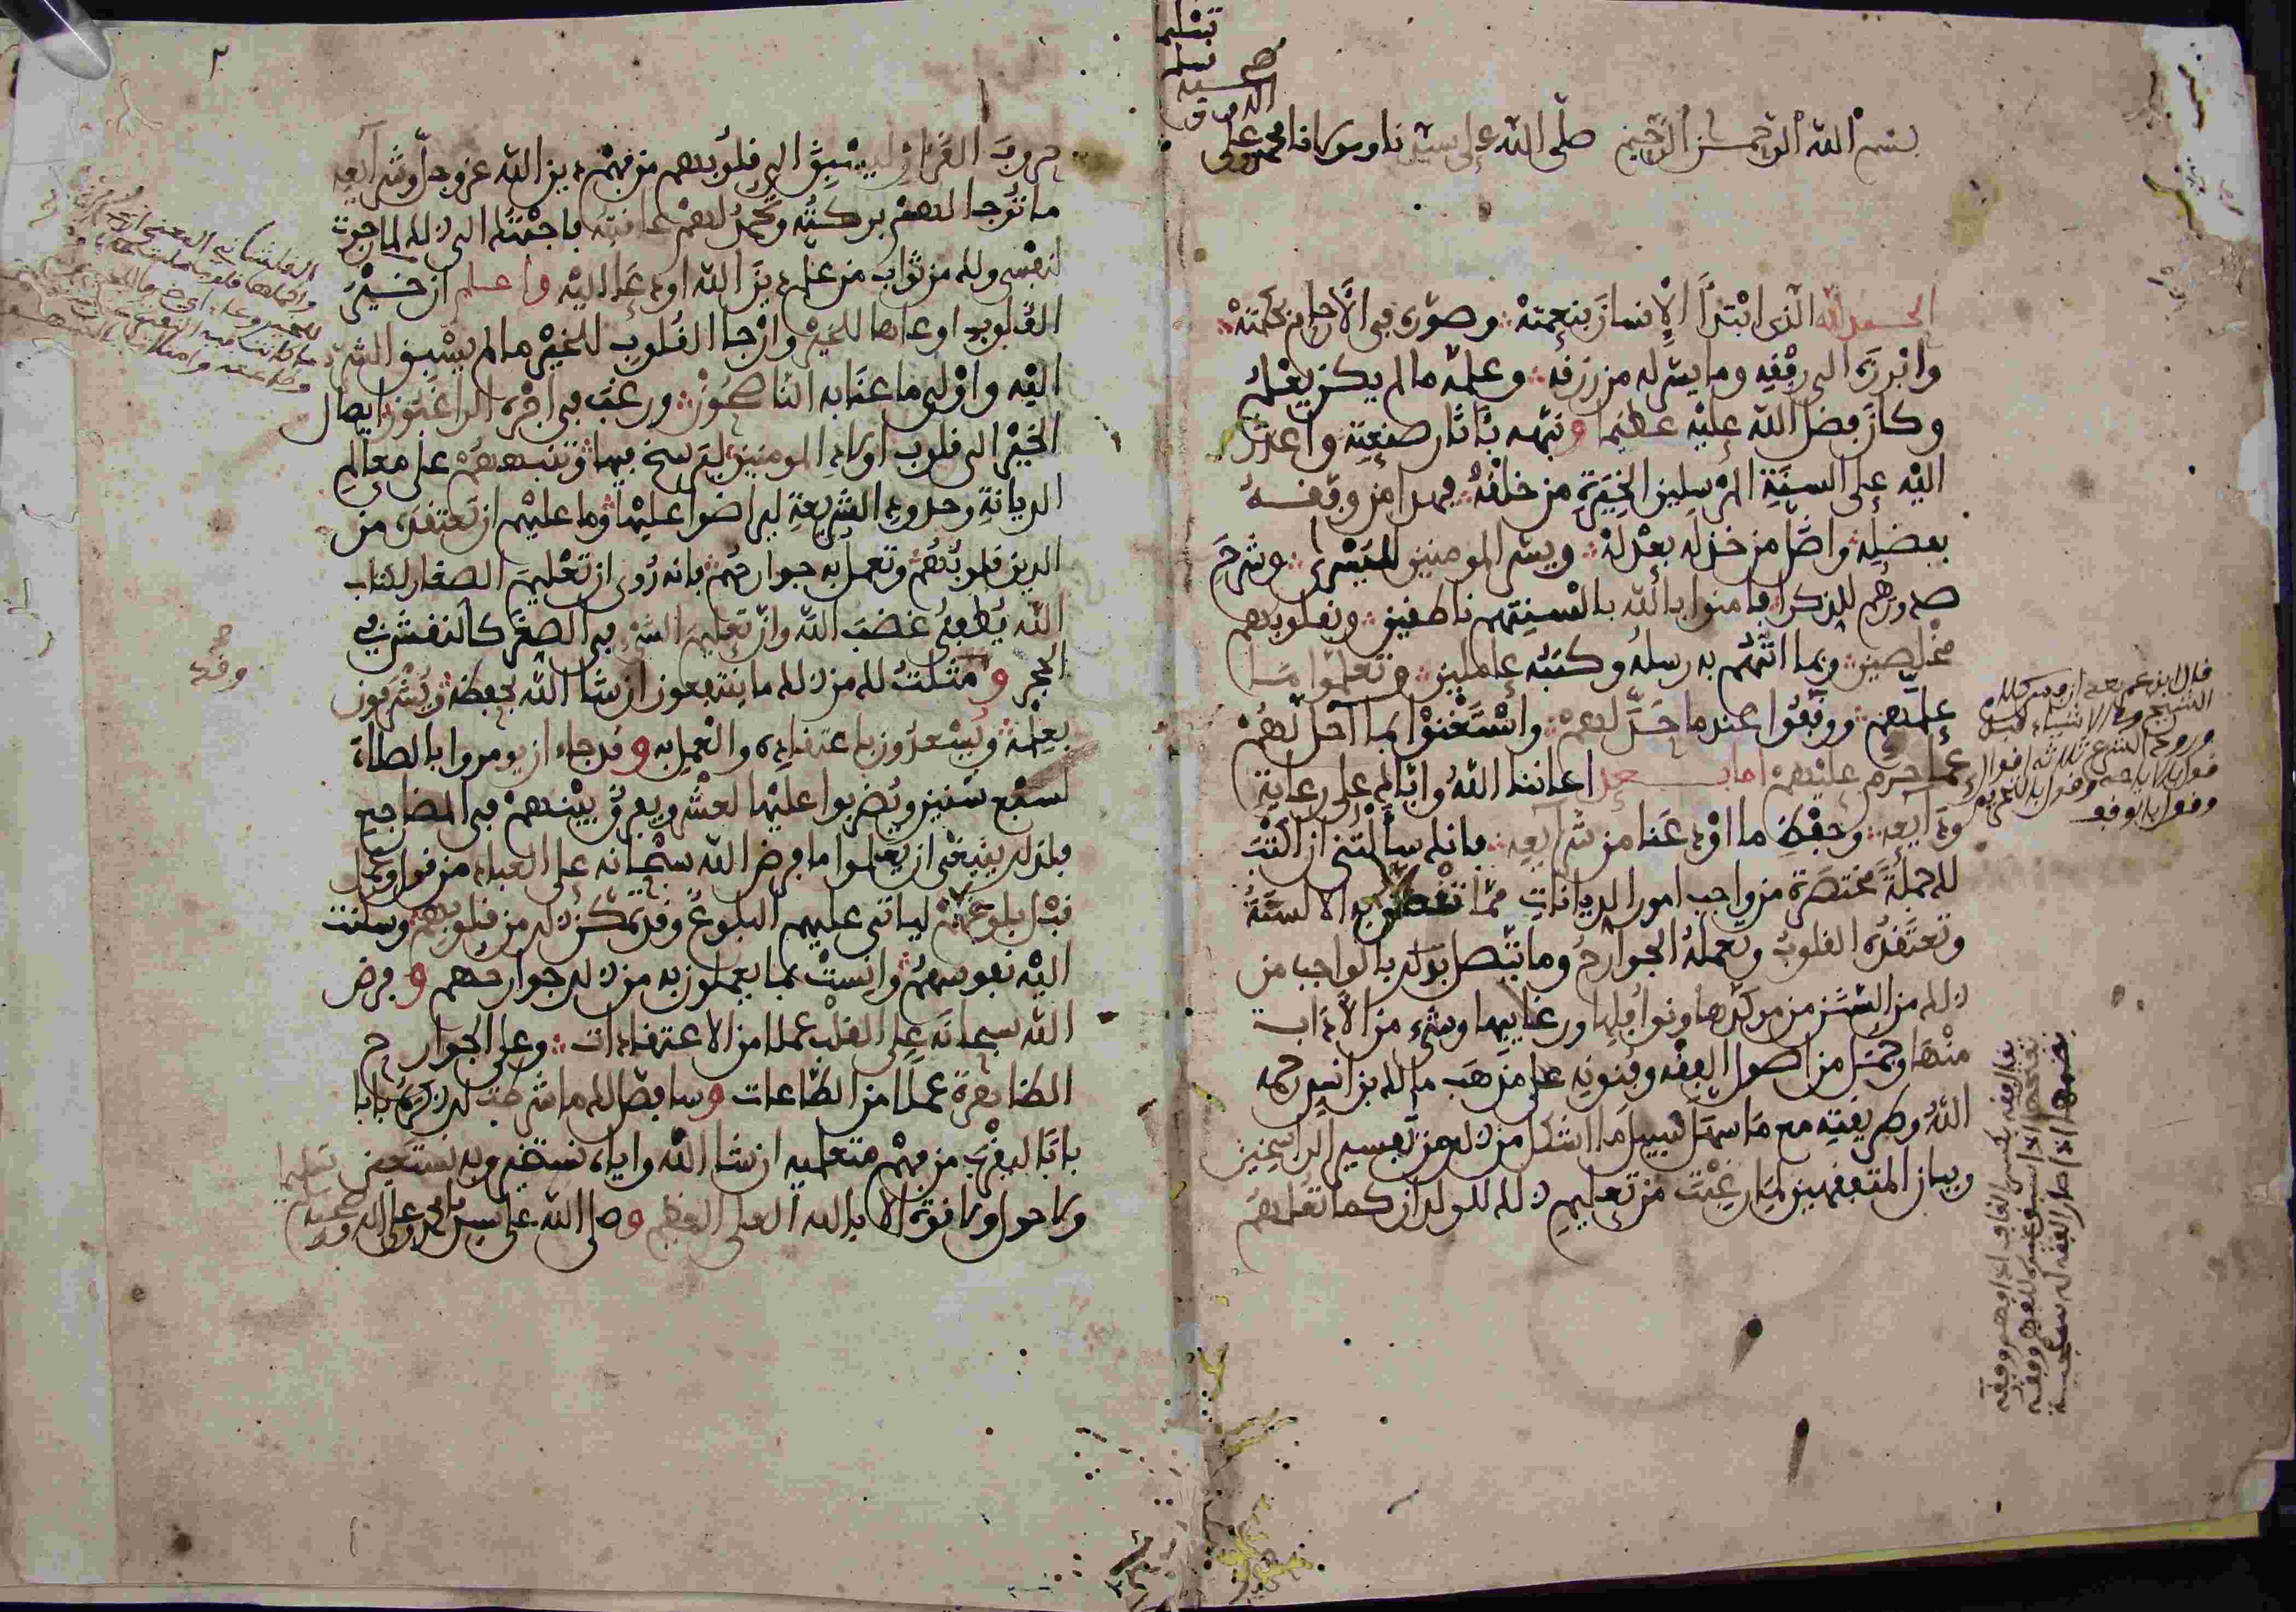 بسم الله الرحمن الرحيم صلى الله على سيدنا ومولانا محمد وعلى
اله وصحبه وسلم تسليما
الحمد لله الذي ابتدأ الإنسان بنعمته وصوره في الأرحام بحكمته
وابرزه الى رفقه وما يسره له من رزقه وعلمه ما لم يكن يعلم
وكان فضل الله عليه عظيما ونبهه بآثار صنعته واعذر
اليه على السنة المرسلين الخيرة من خلقه فهدا من وفقه
بفضله واضل من خذله بعدله ويسر المومنين لليسرى وشرح
صدورهم للذكرى فامنوا بالله بالسنتهم ناطقين وبقلوبهم
مخلصين وبما اتتهم به رسله وكتبه عاملين وتعلموا ما
علمهم ووقفوا عند ما حد لهم واستغنوا بما احل لهم
عما حرم عليهم اما بعد اعاننا الله واياك على رعاية
ودايعه وحفظ ما اودعنا من شرايعه فانك سألتني ان اكتب
لك جملة مختصرة من واجب امور الديانات مما تنطق به الالسنة
وتعتقده القلوب وتعمله الجوارح وما يتصل بذلك بالواجب من
ذلك من السنن من موكدها ونوافلها ورغايبها وشيء من الآداب
منها وجمل من اصول الفقه وفنونه على مذهب مالك بن انس رحمه
الله وطريقته مع ما سهل سبيل ما اشكل من ذلك من تفسير الراسخين
وبيان المتفقهين لما رغبت من تعليم ذلك للولدان كما تعلمهم
قال ابن عمر يعني ان
الشرع
ورود الشرع ثلاثة اقوال
قول بالاباحة وقول بالتحريم
وقول بالوقف
حروف القران ليسبق الى قلوبهم من فهم دين الله عز وجل وشرايعه
ما ترجا لهم بركته وتحمد لهم عاقبته فاجبتك الى ذلك لما رجوت
لنفسي ولك من ثواب من علم دين الله او دعا اليه واعلم ان خير
القلوب اوعاها للخير وارجا القلوب للخير ما لم يسبق الشر
اليه واولى ما عنا به الناصحون ورغب في اجره الراغبون ايصال
الخير الى قلوب اولاد المومنين ليرسخ فيها وتنبيههم على معالم
الديانة وحدود الشريعة ليراضوا عليها وما عليهم ان تعتقده من
الدين قلوبهم وتعمل به جوارحهم فانه روى ان تعليم الصغار لكتاب
الله يطفئ غضب الله وان تعليم الشيء في الصغر كالنقش في
الحجر وقد مثلت لك من ذلك ما ينتفعون ان شا الله بحفظه ويشرفون
بعلمه ويسعدون باعتقاده والعمل به وقد جاء ان يومروا بالصلاة
لسبع سنين ويضربوا عليها لعشر ويفرق بينهم في المضاجع
فكذلك ينبغي ان يعلموا ما فرض الله سبحانه على العباد من قول وعمل
قبل بلوغهم لياتي عليهم البلوغ وقد تمكن ذلك من قلوبهم وسكنت
اليه نفوسهم وانست بما يعملون به من ذلك جوارحهم وفرض
الله سبحانه على القلب عملا من الاعتقادات وعلى الجوارح
الظاهرة عملا من الطاعات وسافصل لك ما شرطت لك ذكره بابا
بابا ليقرب من فهم متعلميه ان شا الله واياه نستخير وبه نستعين
ولا حول ولا قوة الا بالله العلي العظيم وصلى الله على سيدنا محمد وعلى اله وصحبه
تسليما